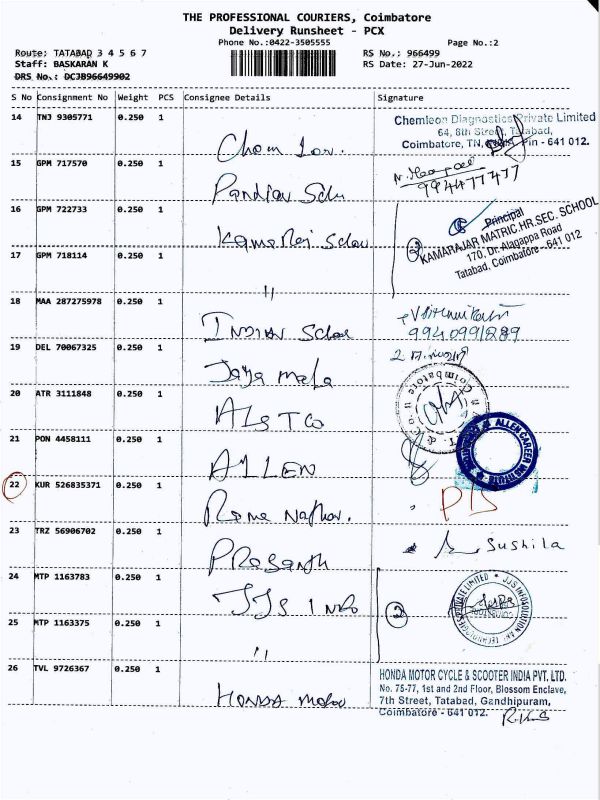 THE PROFESSIONAL COURIERS, Coimbatore
Delivery Runsheet - PCX
Phone No.:0422-3505555
Page No.:2
Route: TATABAD 3 4 5 6 7
RS No.: 966499
Staff: BASKARAN K
RS Date: 27-Jun-2022
DRS No.: DCJB96649902
S No Consignment No Weight PCS Consignee Details Signature
14 TNJ 9305771 0.250 1
Chemleon Diagnostics Private Limited
64, 8th Street, Tatabad,
Coimbatore, TN, India, Pin - 641 012.
15 GPM 717570 0.250 1
Pandian Sch
994477477
16 GPM 722733 0.250 1
Kamaraj School
Principal
KAMARAJAR MATRIC.HR.SEC. SCHOOL
170, Dr. Alagappa Road
Tatabad, Coimbatore - 641 012
2
17 GPM 718114 0.250 1
"
18 MAA 287275978 0.250 1
INDIAN School
9940991289
19 DEL 70067325 0.250 1
Jaya Mala
20 ATR 3111848 0.250 1
ALSTCO
21 PON 4458111 0.250 1
ALLEN
ALLEN CAREER INSTITUTE
22 KUR 526835371 0.250 1
Rama Nathan.
P/S
23 TRZ 56906702 0.250 1
Prasanth
Sushila
24 MTP 1163783 0.250 1
JJS Info
2
25 MTP 1163375 0.250 1
"
26 TVL 9726367 0.250 1
HONDA Motor
HONDA MOTOR CYCLE & SCOOTER INDIA PVT. LTD.
No. 75-77, 1st and 2nd Floor, Blossom Enclave,
7th Street, Tatabad, Gandhipuram,
Coimbatore - 641 012.